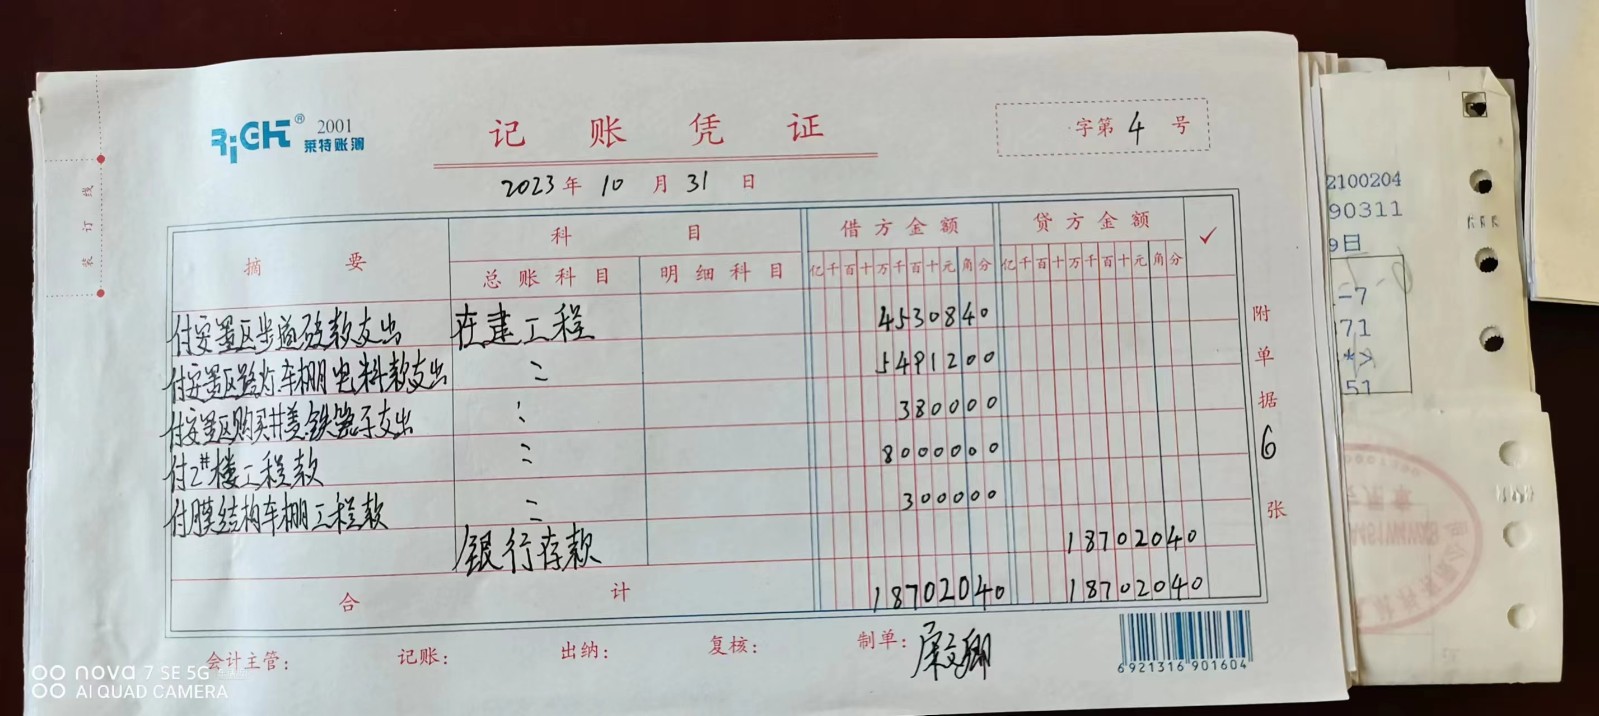 RiGHT® 2001
莱特账簿
记账凭证
字第 4 号
2023 年 10 月 31 日
装订线
摘要 科目 借方金额 贷方金额 ✓
总账科目 明细科目 亿千百十万千百十元角分 亿千百十万千百十元角分
付安置区步道砖款支出 在建工程 4530840
付安置区路灯.车棚电料款支出 〃 5491200
付安置区购买井盖.铁篦子支出 〃 380000
付2#楼工程款 〃 8000000
付膜结构车棚工程款 〃 300000
银行存款 18702040
合计 18702040 18702040
附单据 6 张
会计主管: 记账: 出纳: 复核: 制单:
6921316901604
2100204
90311
9日
-7
71
*>
51
nova 7 SE 5G
AI QUAD CAMERA